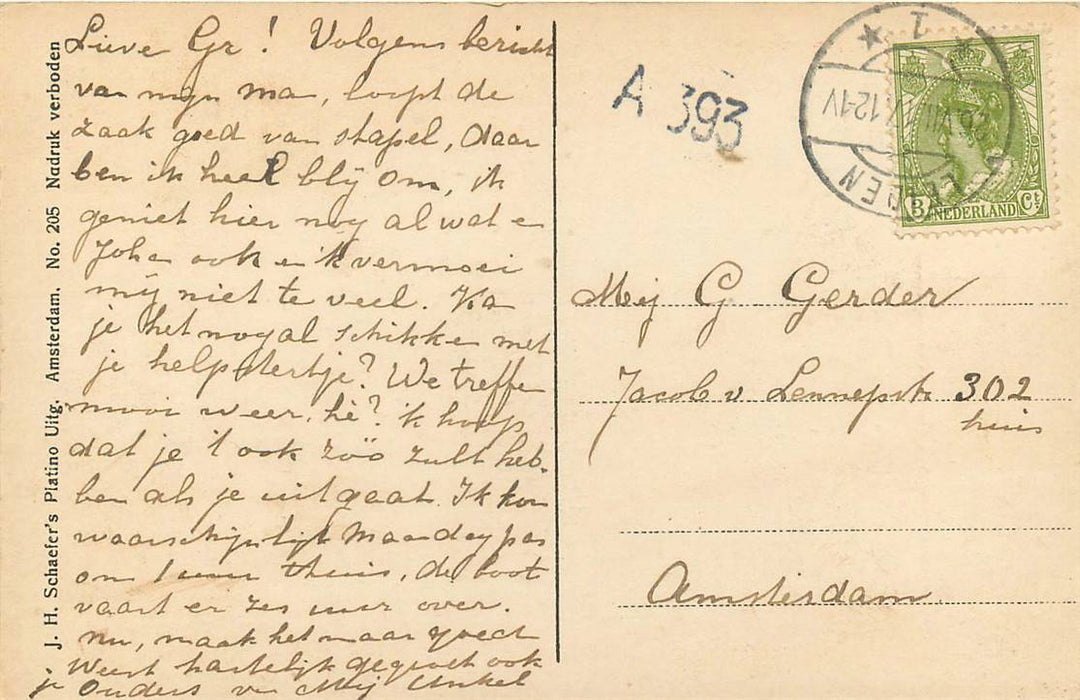 J. H. Schaefer's Platino Uitg. Amsterdam. No. 205 Nadruk verboden
Lieve Gr! Volgens bericht
van mijn ma, loopt de
zaak goed van stapel, daar
ben ik heel blij om, ik
geniet hier nog al wat en
Joha ook en ik vermoei
mij niet te veel. Ka
je het nogal schikken met
je helpstertje? We treffen
mooi weer, hè? ik hoop
dat je 't ook zoo zult heb-
ben als je uitgaat. Ik kom
waarschijnlijk Maandag pas
om 1 uur thuis, de boot
vaart er zes uur over.
nu, maak het maar goed
Weest hartelijk gegroet ook
je Ouders v Mij
A 393
1
12-1V
LEIDEN
3 Ct
NEDERLAND
Mej G Gerder
Jacob v Lennepstr 302
huis
Amsterdam